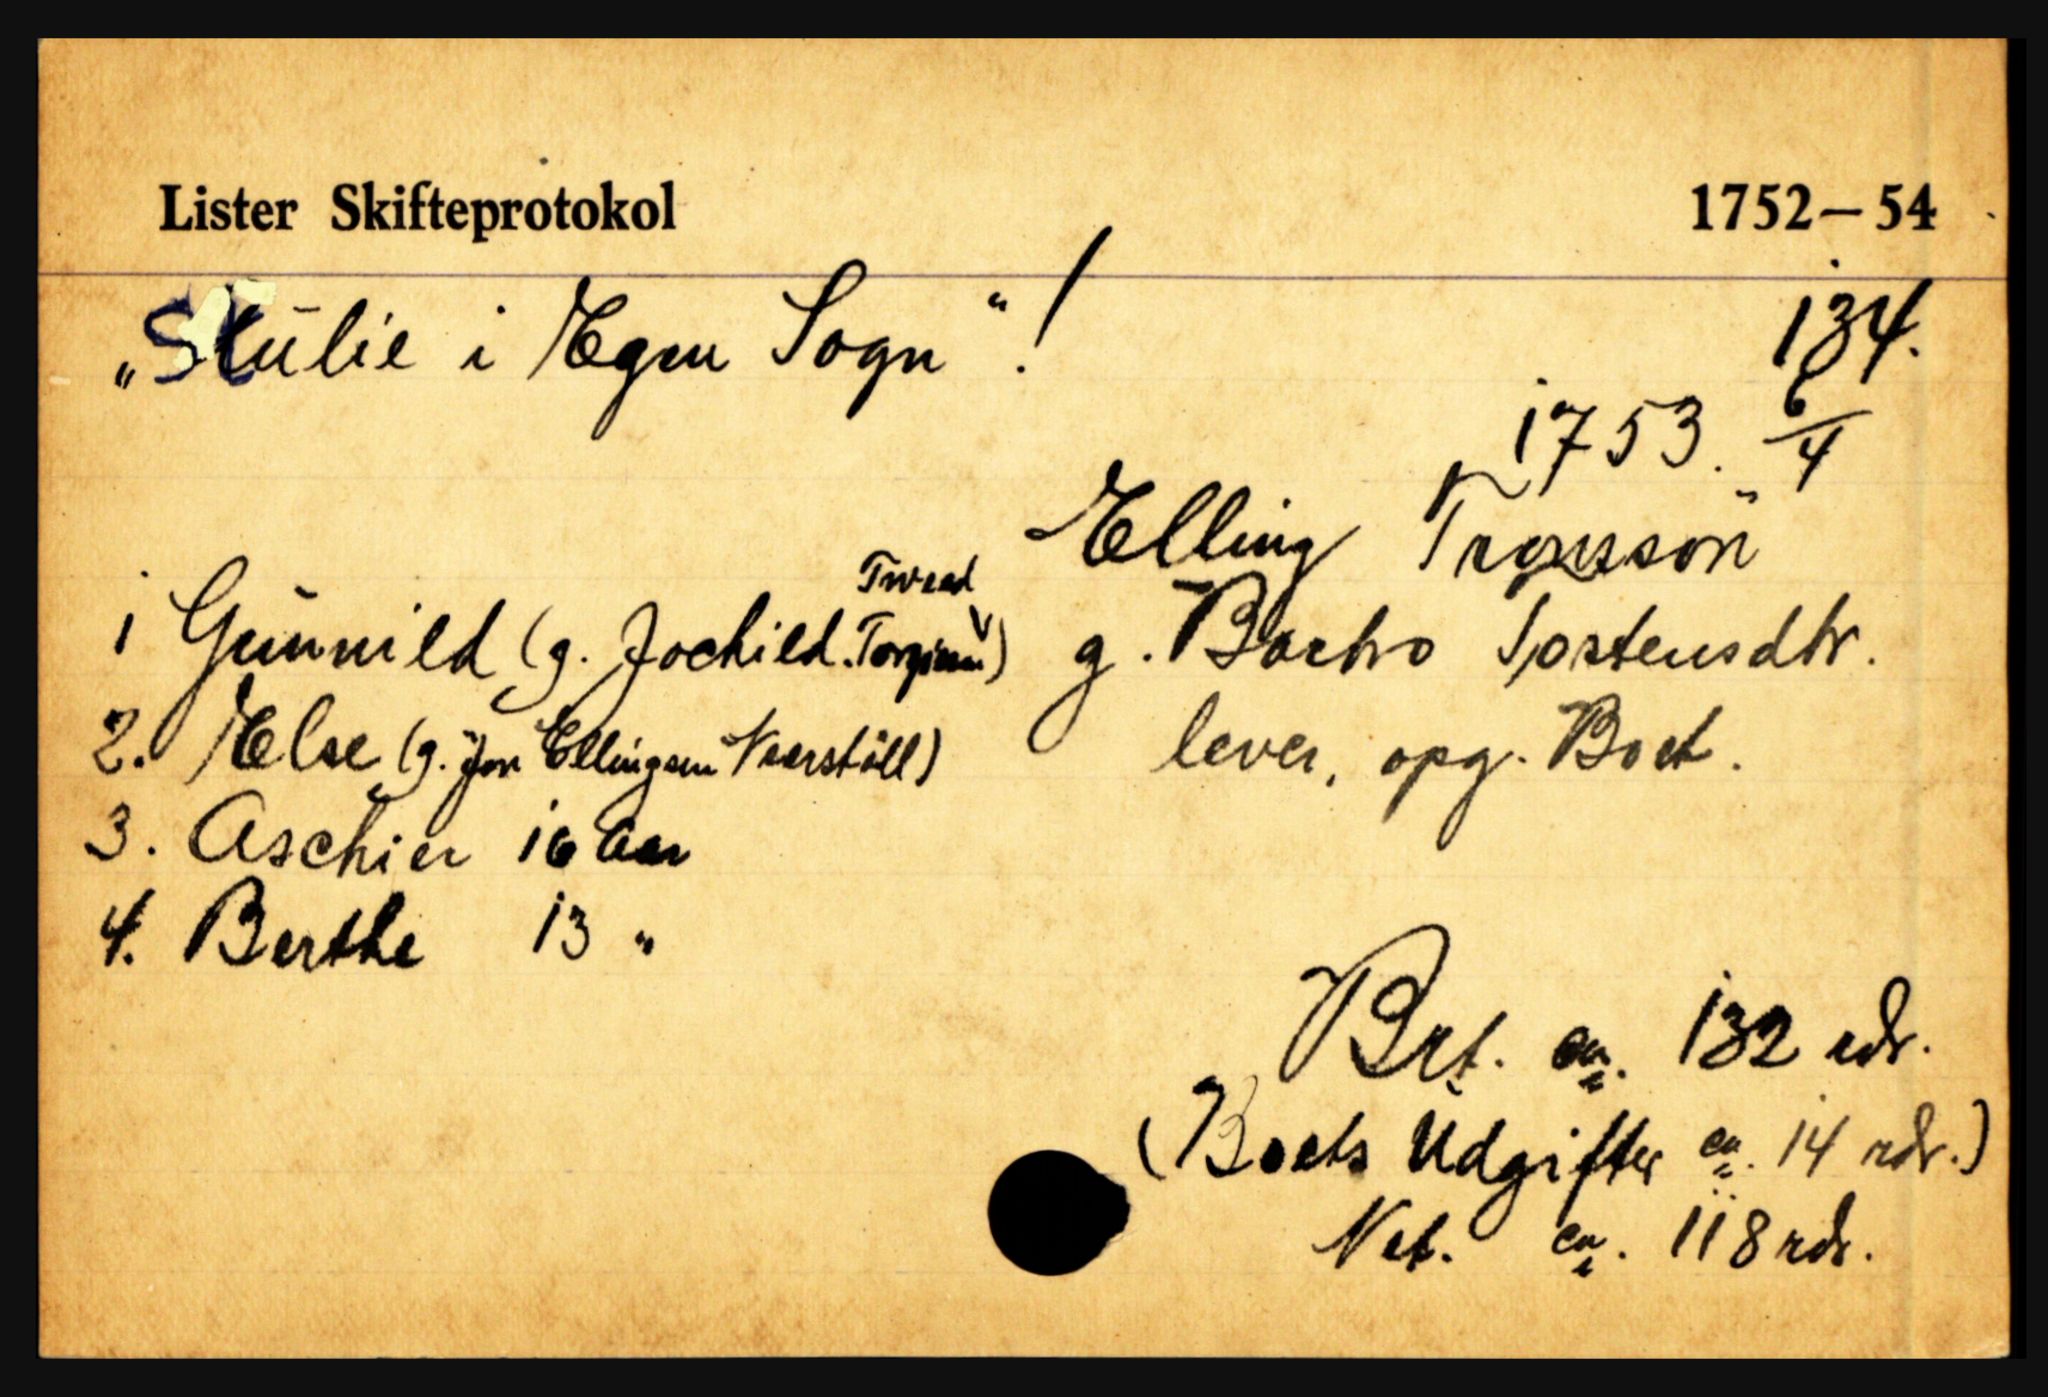 Lister Skifteprotokol 1752-54
"Skulie i Egen Sogn"! 134.
1753. 6/4
Elling Trgusson
g. Barbro Tostensdtr.
lever, opg. Boet.
Tveed
1 Gunnild (g. Jochild. Torgiesen)
2. Else (g. Jon Ellingsen Neerstöll)
3. Aschier 16 Aar
4. Berthe 13 "
Brt. ca. 132 rdr.
(Boets Udgifter ca. 14 rdr.)
Net. ca. 118 rdr.